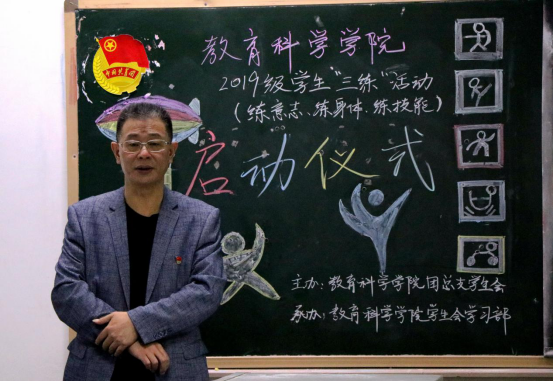 教育科学学院
2019级学生"三练"活动
(练意志、练身体、练技能)
启动仪式
主办:教育科学学院团总支学生会
承办:教育科学学院学生会学习部
中国共青团